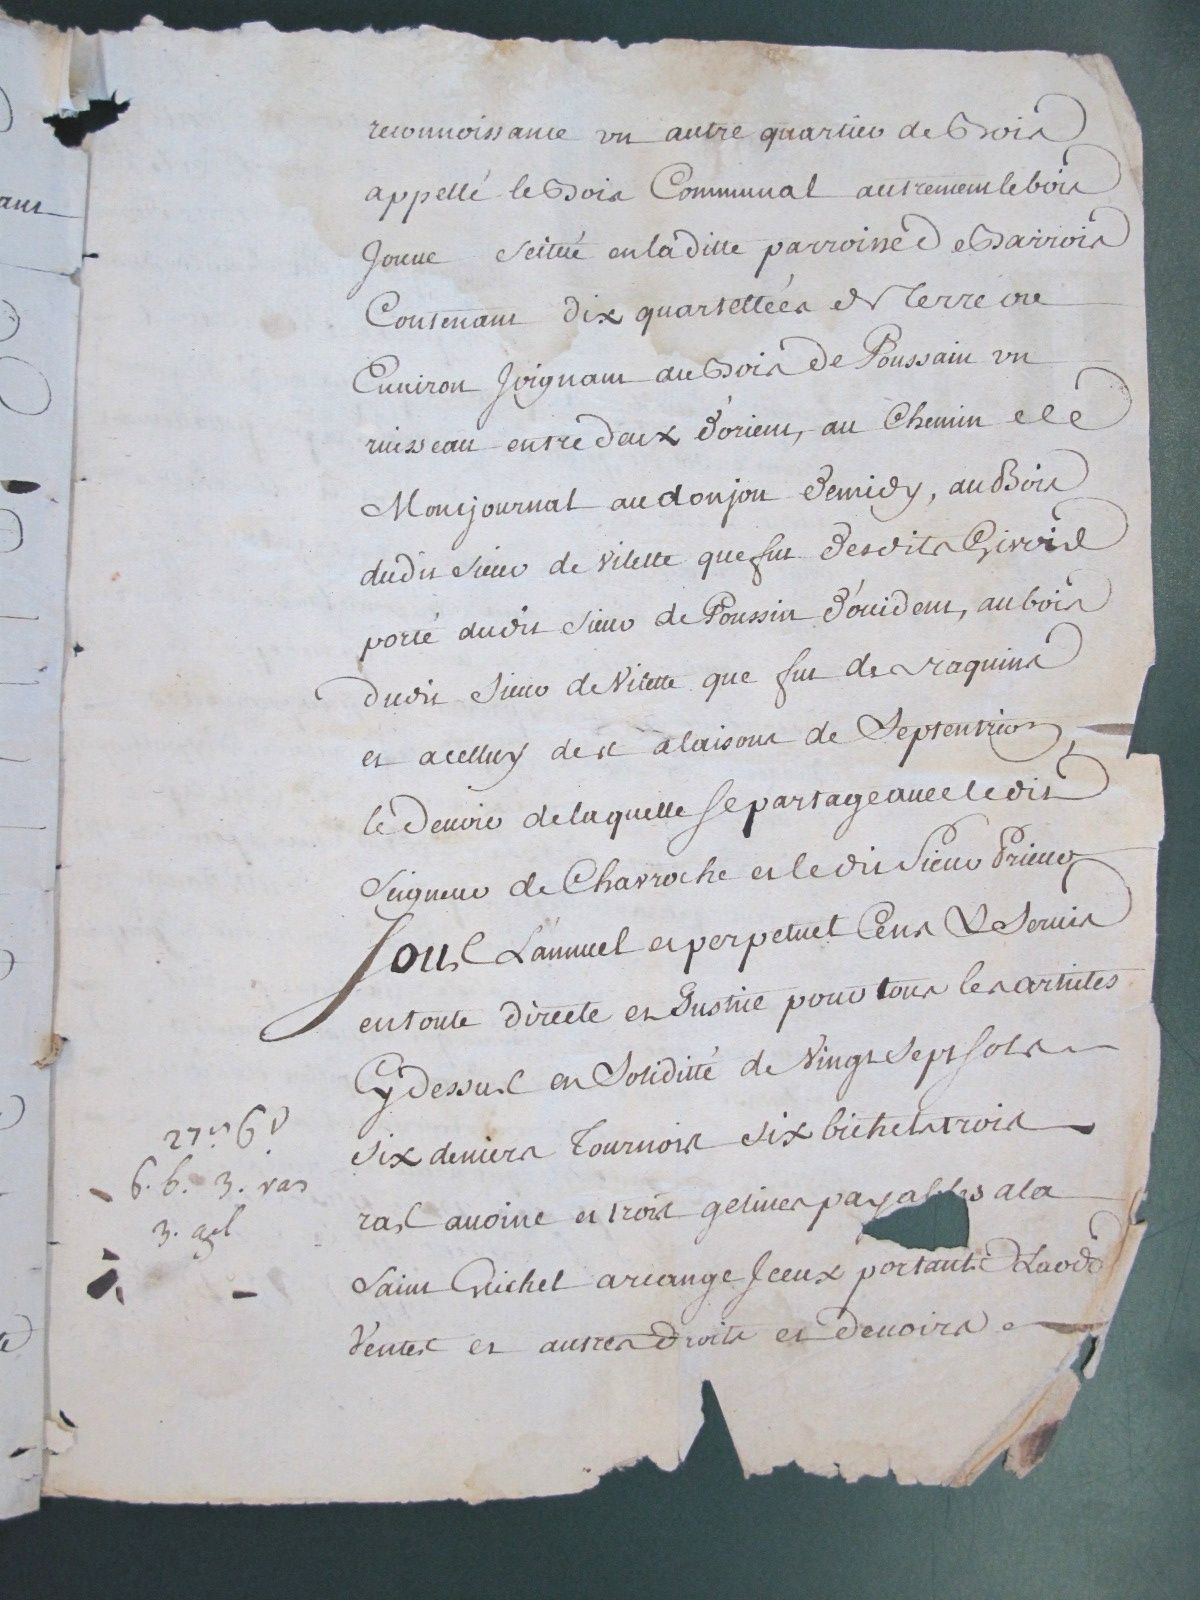 reconnoissance vn autre quartier de Bois
appellé le Bois Communal autrement le bois
Joune scitué en la ditte parroisse de Barrois
Contenant dix quartellées de Terre ou
Enuiron Joignant au Bois de Poussain vn
ruisseau entre deux d'orient, au Chemin de
Montjournal au donjon de midy, au Bois
dudit sieur de Vilette que fut desdits Giroid
porté dudit sieur de Poussin d'occident, au bois
dudit sieur de Vilette que fut des raquins
et a celluy des alaisons de Septentrion
le deuoir de laquelle se partage auec le dit
Seigneur de Charroche et le dit Sieur Prieur
Sous L'annuel et perpetuel Cens & Seruis
en toute directe et Justice pour tous les articles
Cy dessus en Soliditté de Vingt Sept sols
six deniers Tournois six bichets trois
ras auoine et trois gelines payables a la
Saint Michel arcange Jceux portants Laods
Ventes et autres Droits et Deuoirs
27 s 6 d
6. b. 3. ras
3. gel